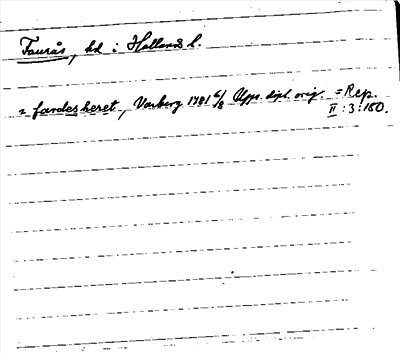 Faurås, hd i Hallands l.
= fardesheret, Varberg 1481 6/8 Upps. dipl. orig. = Rep.
II : 3 : 180.